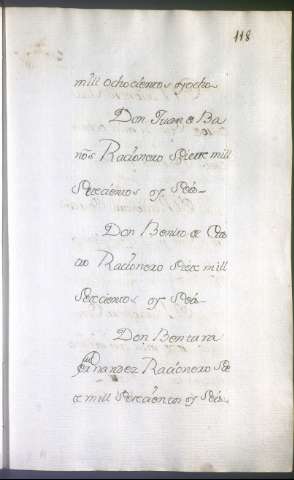 118
mill ochocientos y ocho
Don Juan de Ba
ños Racionero Siete mill
Settecientos y Seis
Don Benito de
Racionero Siete mill
Settecientos y Seis
Don Bentura
Fernandez Racionero Sie
te mill Settecientos y Seis